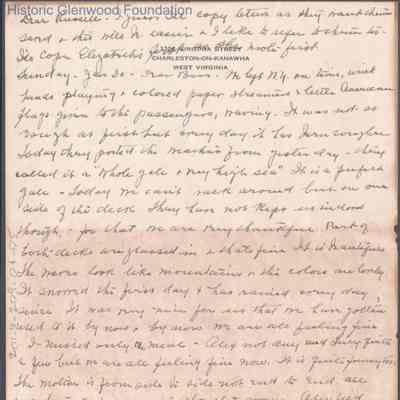 Historic Glenwood Foundation
Dear Russell - Guess I'll copy letters as they want them
saved & this will be easier & I like to refer to them to.
1328 VIRGINIA STREET
I'll copy Elizabeth's first
CHARLESTON-ON-KANAWHA
WEST VIRGINIA
Sunday - Jan 30 - Dear Ones - We left N.Y. on time, with
bands playing & colored paper streamers & little American
flags given to the passengers, waving. It was not so
rough at first but every day it has been rougher
Today they posted the weather from yesterday - they
called it a "Whole gale & very high sea" It is a perfect
gale - Today we can't walk around but on one
side of the deck They have not kept us indoors
though - for that we are very thankful. Part of
both decks are glassed in & that's fine. It is beautiful
The waves look like mountains & the colors are lovely
It snowed the first day & has rained every day
since. It was very nice for us that we have gotten
used to it by now & by now we are all feeling fine
I missed only one meal - Alex not any and
a few but we are all feeling fine now. It is quite funny too.
The motion is from side to side not end to end